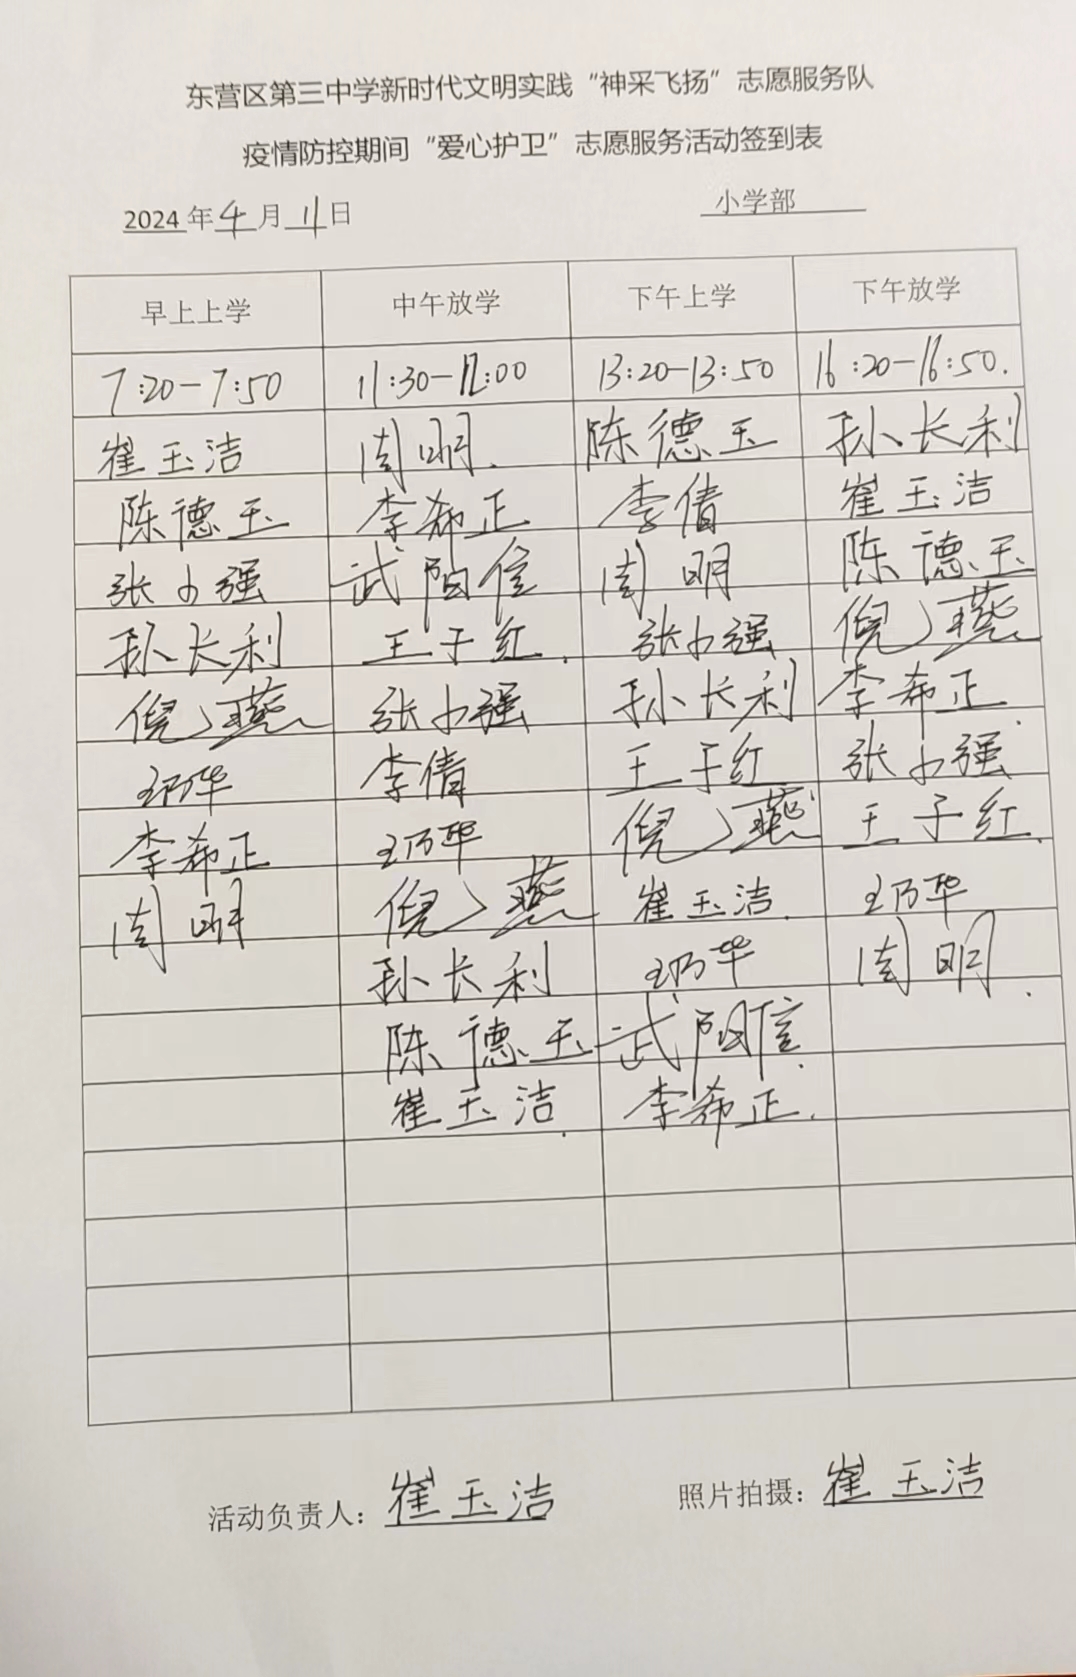 东营区第三中学新时代文明实践“神采飞扬”志愿服务队
疫情防控期间“爱心护卫”志愿服务活动签到表
2024年4月11日 小学部
早上上学 中午放学 下午上学 下午放学
7:20-7:50 11:30-12:00 13:20-13:50 16:20-16:50.
崔玉洁 周明. 陈德玉 孙长利
陈德玉 李希正 李倩 崔玉洁
张小强 武阳信 周明 陈德玉
孙长利 王于红. 张小强 倪燕
倪燕 张小强 孙长利 李希正.
王乃华 李倩 王于红 张小强
李希正 王乃华 倪燕 王于红.
周明 倪燕 崔玉洁. 王乃华
孙长利 王乃华 周明.
陈德玉 武阳信.
崔玉洁. 李希正.
活动负责人：崔玉洁 照片拍摄：崔玉洁